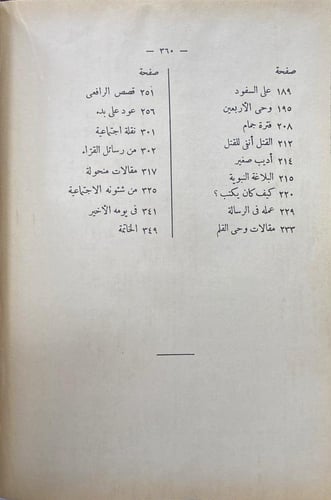 — ٣٦٠ —
صفحة
١٨٩ على السفود
١٩٥ وحى الأربعين
٢٠٨ فترة جمام
٢١٢ القتل أنفى للقتل
٢١٤ أديب صغير
٢١٥ البلاغة النبوية
٢٢٠ كيف كان يكتب؟
٢٢٩ عمله فى الرسالة
٢٣٣ مقالات وحى القلم
صفحة
٢٥١ قصص الرافعى
٢٥٦ عود على بدء
٣٠١ نقلة اجتماعية
٣٠٢ من رسائل القراء
٣١٧ مقالات منحولة
٣٢٥ من شئونه الاجتماعية
٣٤١ فى يومه الأخير
٣٤٩ الخاتمة